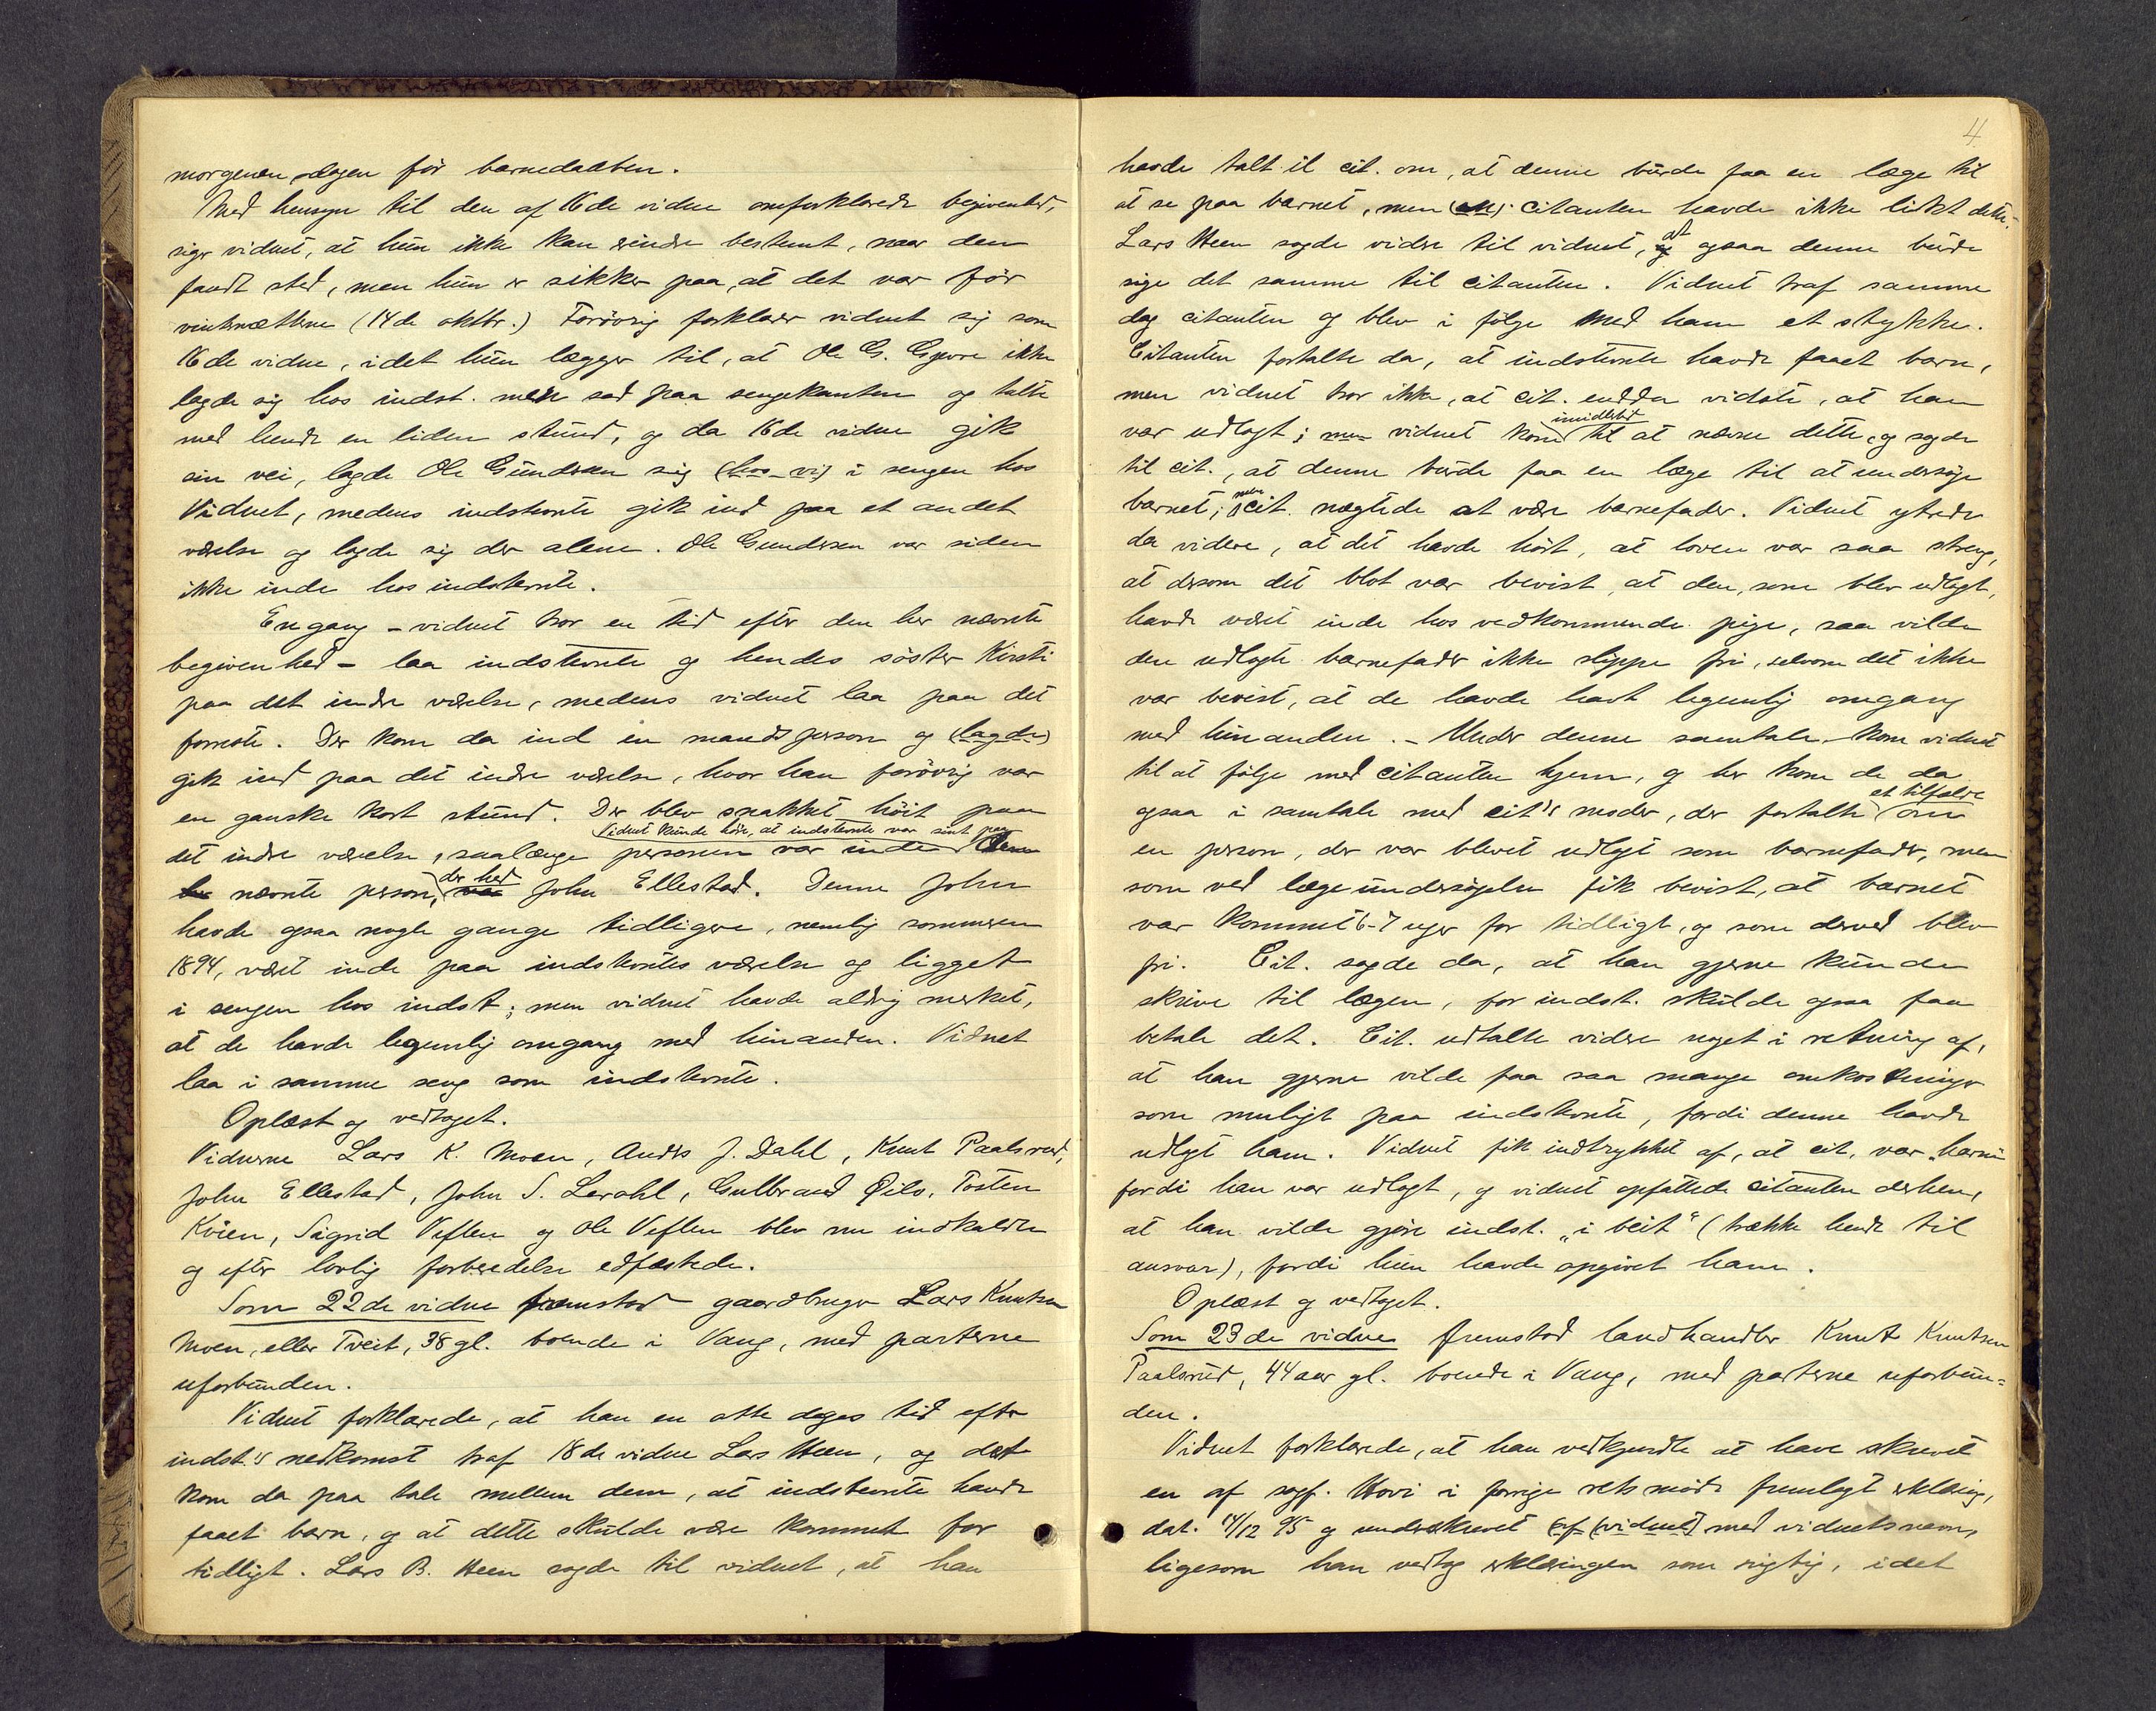 morgenen dagen før barnedaaben.
Med hensyn til den af 16de vidne omforklarede begivenhed,
siger vidnet, at hun ikke kan erindre bestemt, naar den
fandt sted, men hun er sikker paa, at det var før
vinternætterne (14de oktbr.) Forøvrig forklarer vidnet sig som
16de vidne, idet hun lægger til, at Ole G. Gjevre ikke
lagde sig hos indst. men sad paa sengekanten og talte
med hende en liden stund, og da 16de vidne gik
sin vei, lagde Ole Gundersen sig (hos vi) i sengen hos
Vidnet, medens indstevnte gik ind paa et andet
værelse og lagde sig der alene. Ole Gundersen var siden
ikke inde hos indstevnte.
Engang – vidnet tror en tid efter den her nævnte
begivenhed – laa indstevnte og hendes søster Kirsti
paa det indre værelse, medens vidnet laa paa det
forreste. Der kom da ind en mandsperson og (lagde)
gik ind paa det indre værelse, hvor han forøvrig var
en ganske kort stund. Der blev snakket høit paa
Vidnet kunde høre, at indstevnte var sint paa
det indre værelse, saalænge personen var inde. Den
her nævnte person, der hed var John Ellestad. Denne John
havde ogsaa nogle gange tidligere, nemlig sommeren
1894, været inde paa indstevntes værelse og ligget
i sengen hos indst.; men vidnet havde aldrig merket,
at de havde legemlig omgang med hinanden. Vidnet
laa i samme seng som indstevnte.
Oplæst og vedtaget.
Vidnerne Lars K. Moen, Anders J. Dahl, Knut Paalsrud,
John Ellestad, John S. Lerahl, Gulbrand Øilo, Tosten
Kvien, Sigrid Veflen og Ole Veflen blev nu indkaldte
og efter lovlig forberedelse edfæstede.
Som 22de vidne fremstod gaardbruger Lars Knutsen
Moen, eller Tveit, 38 gl. boende i Vang, med parterne
uforbunden.
Vidnet forklarede, at han en otte dages tid efter
indst.'s nedkomst traf 18de vidne Lars Heen, og det
kom da paa tale mellem dem, at indstevnte havde
faaet barn, og at dette skulde være kommet for
tidligt. Lars B. Heen sagde til vidnet, at han
4
havde talt til cit. om, at denne burde faa en læge til
at se paa barnet, men (en) citanten havde ikke likt dette.
Lars Heen sagde videre til vidnet, og at ogsaa denne burde
sige det samme til citanten. Vidnet traf samme
dag citanten og blev i følge med ham et stykke.
Citanten fortalte da, at indstevnte havde faaet barn,
men vidnet tror ikke, at cit. endda vidste, at han
var udlagt; men vidnet kom imidlertid til at nævne dette, og sagde
til cit., at denne burde faa en læge til at undersøge
barnet; men cit. nægtede at være barnefader. Vidnet ytrede
da videre, at det havde hørt, at loven var saa streng,
at dersom det blot var bevist, at den, som blev udlagt,
havde været inde hos vedkommende pige, saa vilde
den udlagte barnefader ikke slippe fri, selvom det ikke
var bevist, at de havde havt legemlig omgang
med hinanden. – Under denne samtale kom vidnet
til at følge med citanten hjem, og her kom de da
ogsaa i samtale med cit's moder, der fortalte om et tilfælde
en person, der var blevet udlagt som barnefader, men
som ved lægeundersøgelse fik bevist, at barnet
var kommet 6-7 uger for tidligt, og som derved blev
fri. Cit. sagde da, at han gjerne kunde
skrive til lægen, for indst. skulde ogsaa faa
betale det. Cit. udtalte videre noget i retning af,
at han gjerne vilde faa saa mange omkostninger
som muligt paa indstevnte, fordi denne havde
udlagt ham. Vidnet fik indtrykket af, at cit. var „harm“
fordi han var udlagt, og vidnet opfattede citanten derhen,
at han vilde gjøre indst. „i beit“ (trække hende til
ansvar), fordi hun havde opgivet ham.
Oplæst og vedtaget.
Som 23de vidne fremstod landhandler Knut Knutsen
Paalsrud, 44 aar gl. boende i Vang, med parterne uforbun=
den.
Vidnet forklarede, at han vedkjendte at have skrevet
en af sagf. Hovi i forrige retsmøde fremlagt erklæring,
dat. 14/12 95 og underskrevet (af (vidnet) med vidnets navn,
ligesom han vedtog erklæringen som rigtig, idet